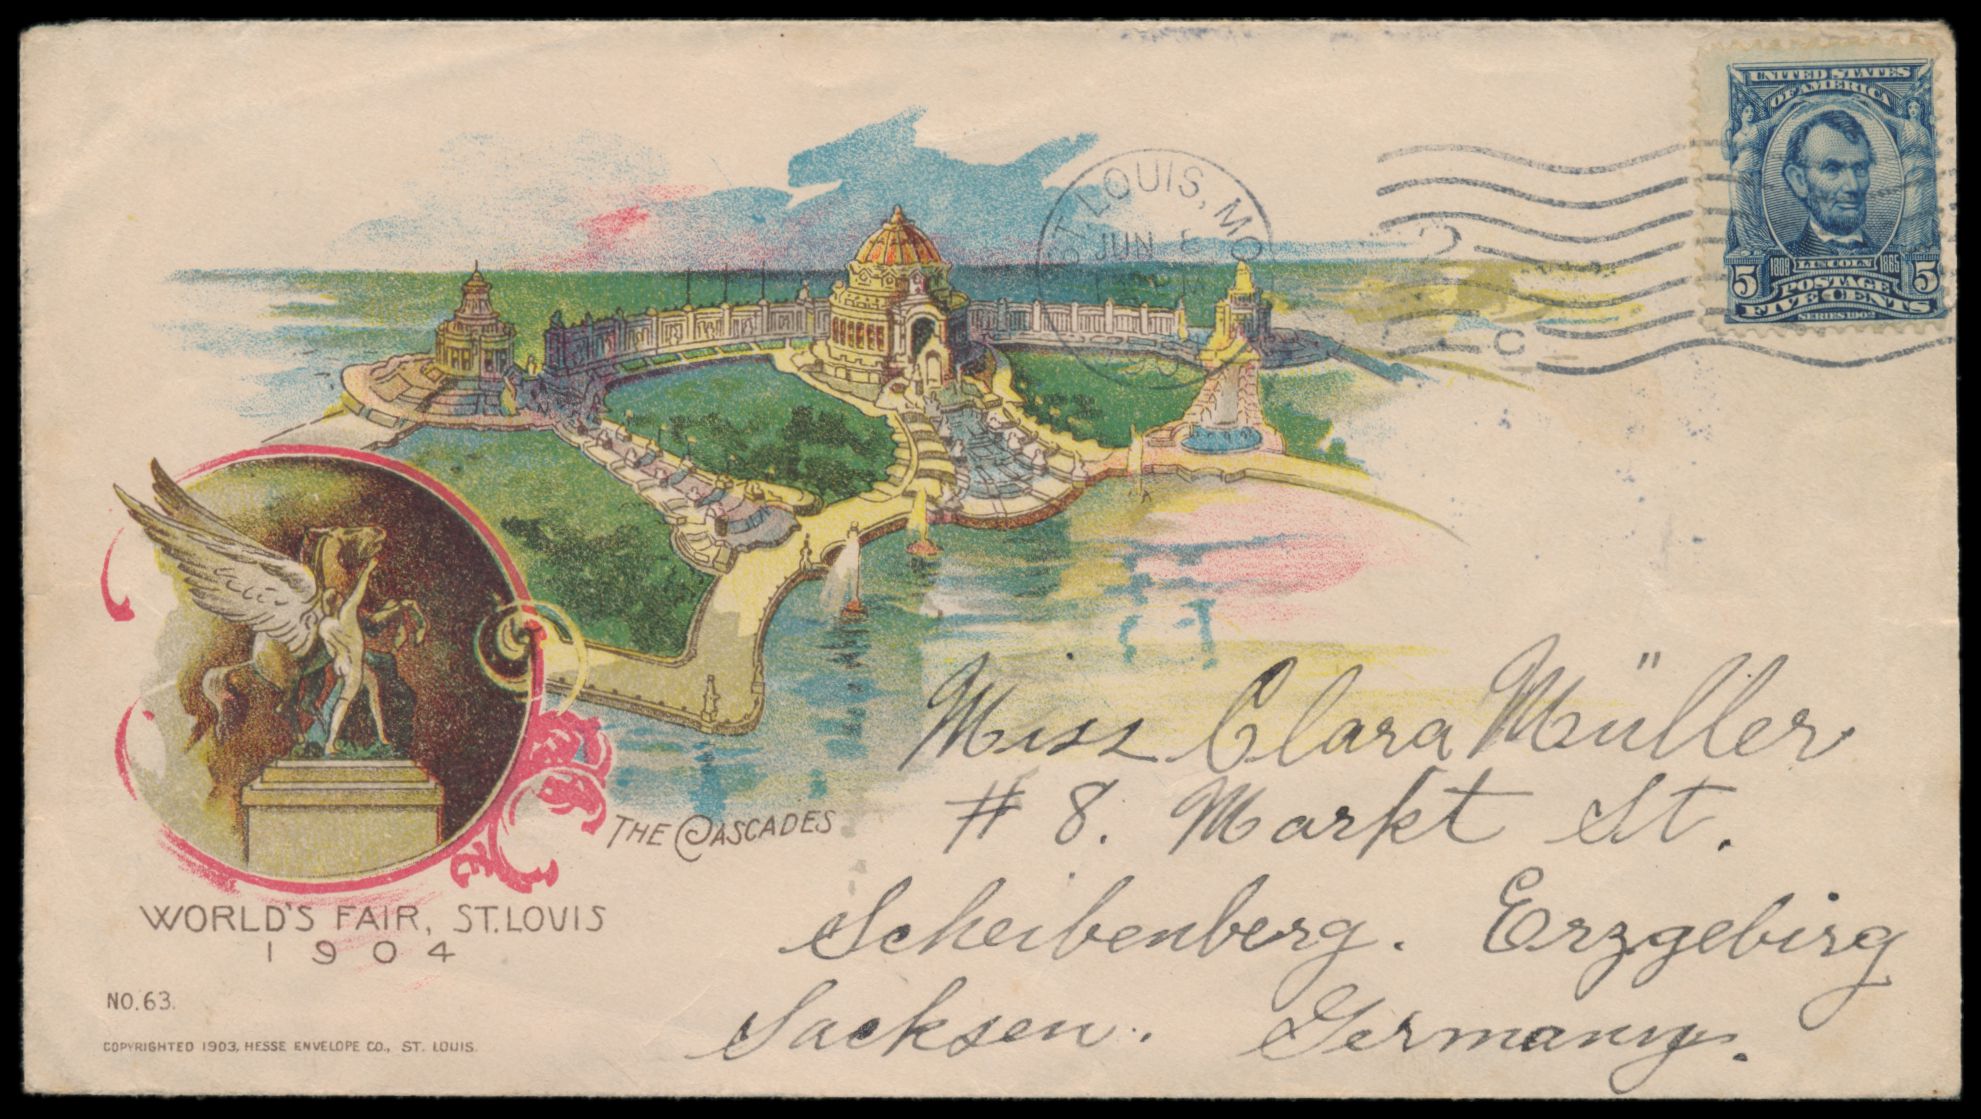 UNITED STATES
OF AMERICA
1808 LINCOLN 1865
5 POSTAGE 5
FIVE CENTS
SERIES 1902
ST. LOUIS, MO
JUN
C
Miss Clara Müller
# 8. Markt St.
Scheibenberg. Erzgebirg
Sacksen. Germany.
THE CASCADES
WORLD'S FAIR, ST. LOUIS
1904
NO. 63.
COPYRIGHTED 1903, HESSE ENVELOPE CO., ST. LOUIS.